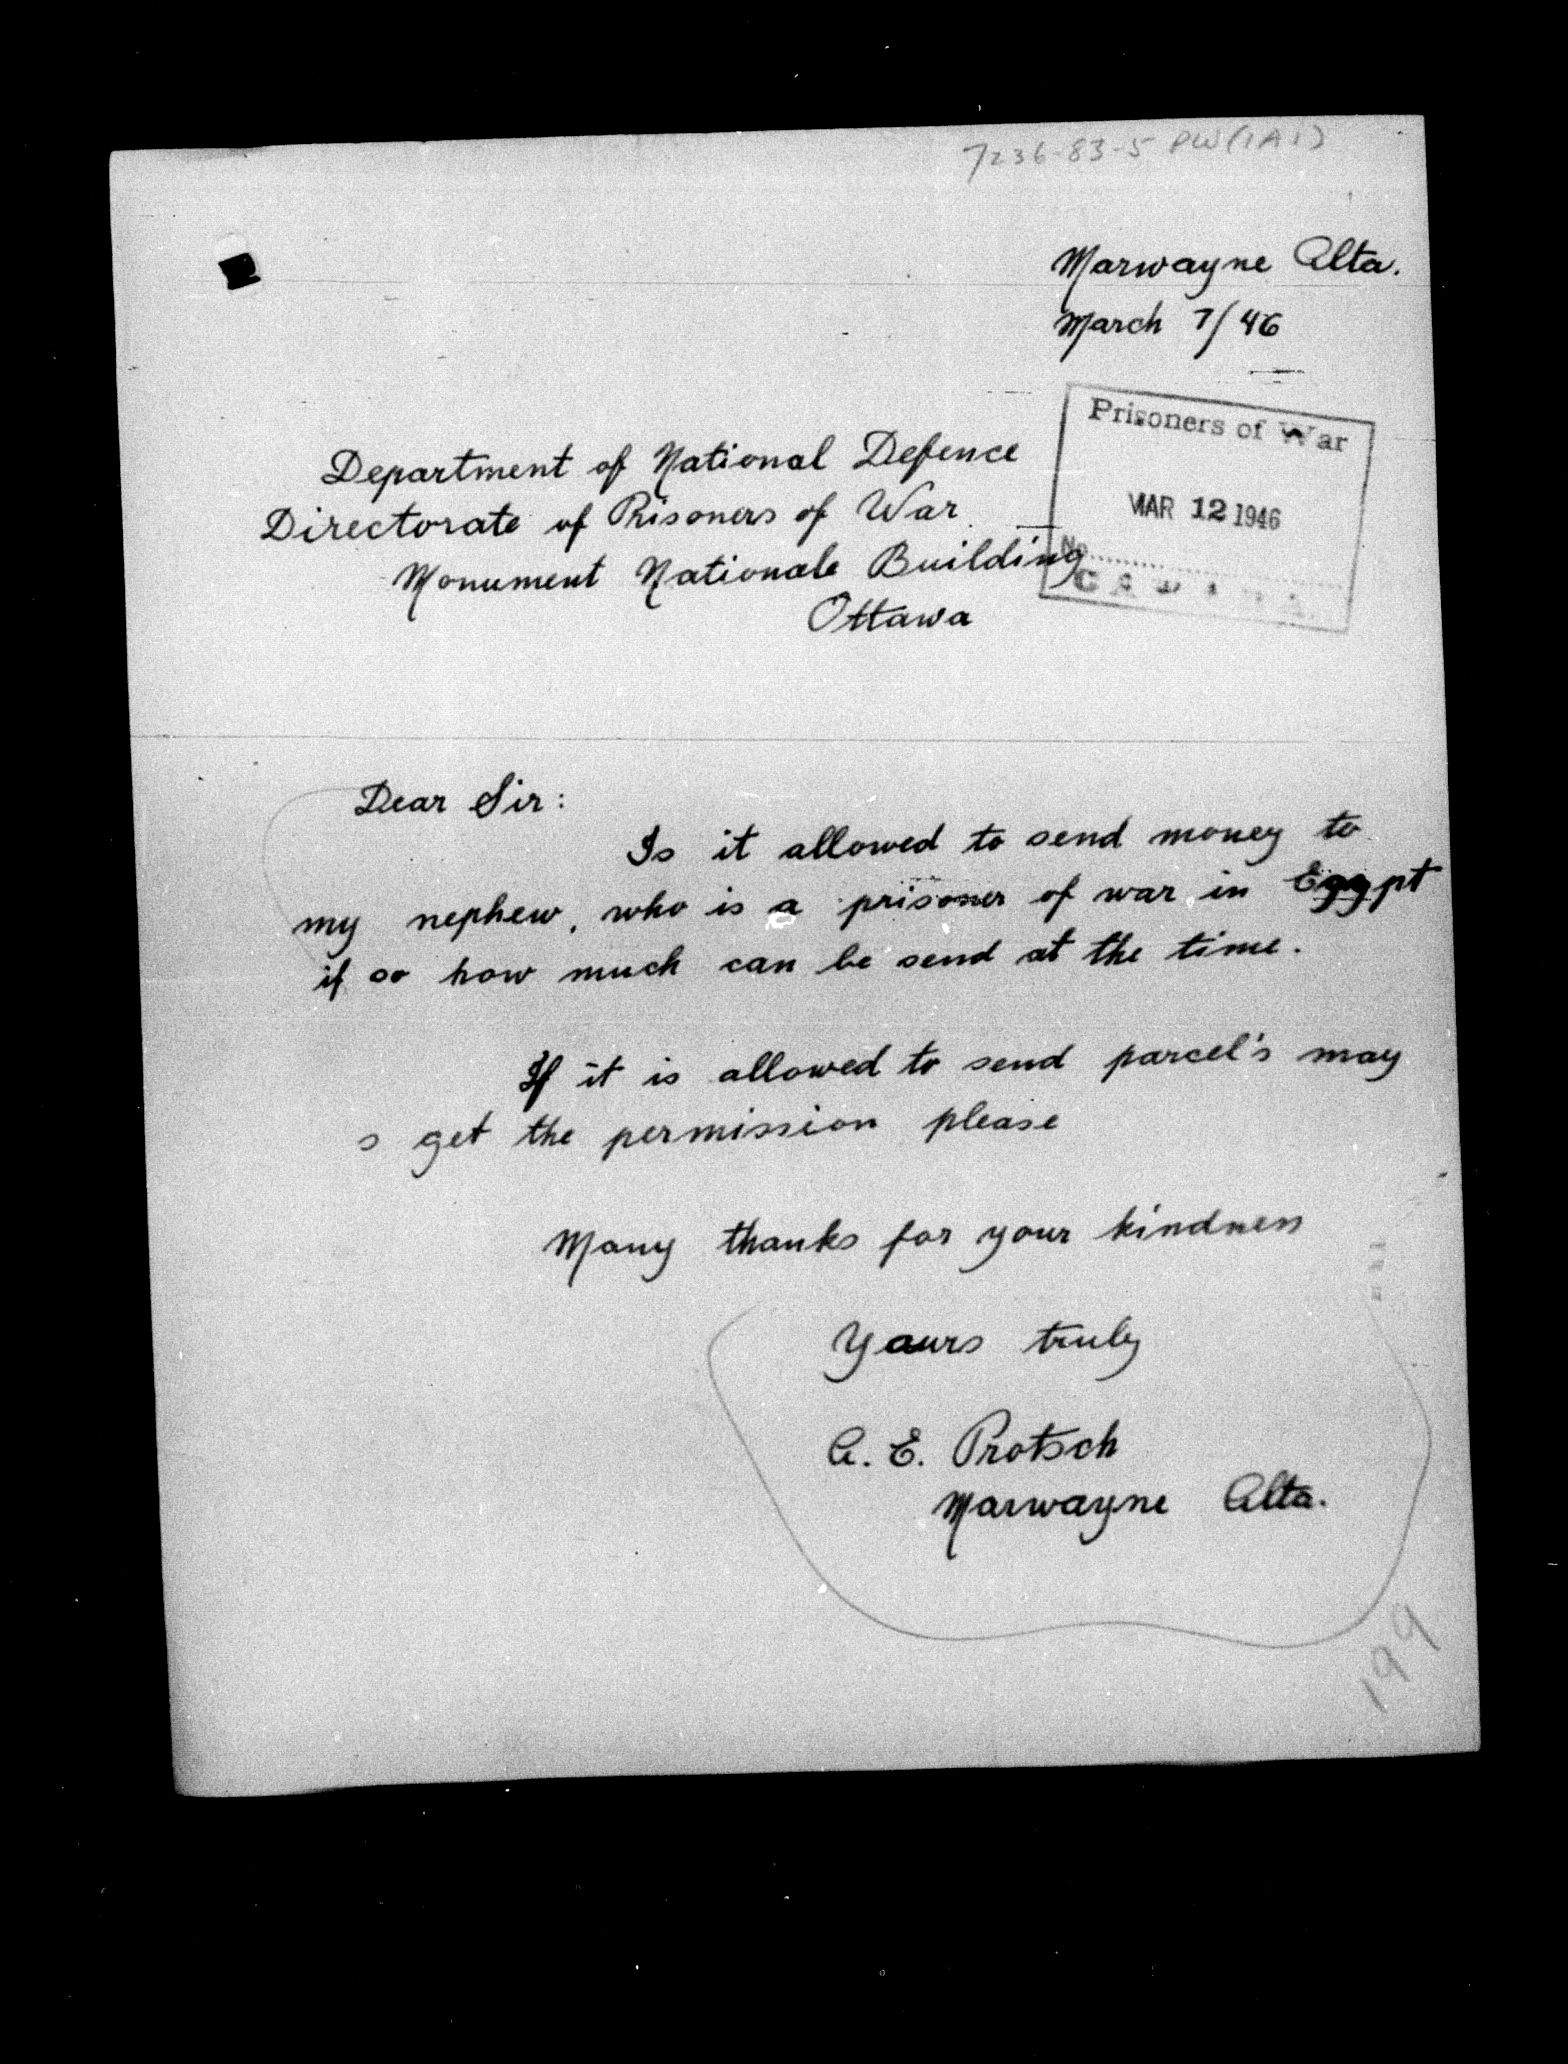 7236-83-5 PW(1A1)
Marwayne Alta.
March 7/46
Prisoners of War
MAR 12 1946
No
CANADA
Department of National Defence
Directorate of Prisoners of War
Monument Nationale Building
Ottawa
Dear Sir:
Is it allowed to send money to
my nephew, who is a prisoner of war in Egypt
if so how much can be send at the time.
If it is allowed to send parcel's may
get the permission please
Many thanks for your kindness
Yours truly
A. E. Protsch
Marwayne Alta.
199